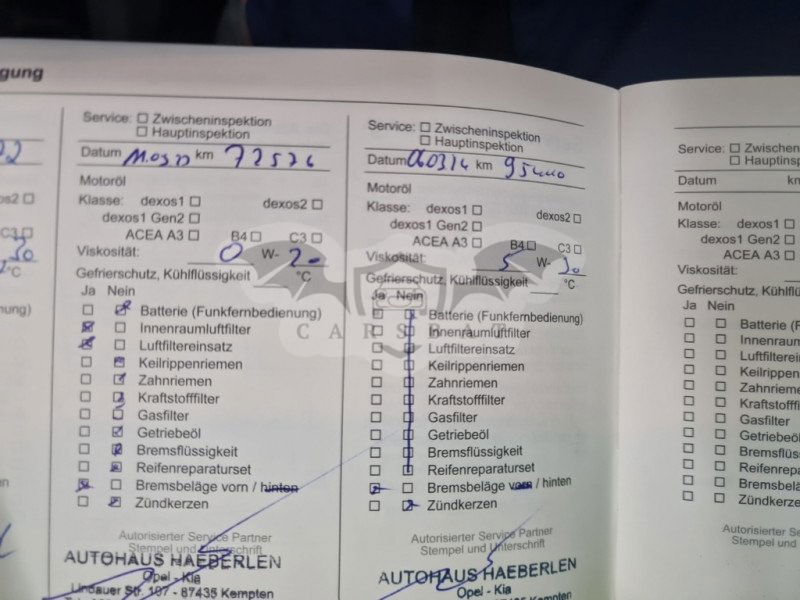 gung
os2
C3
50
°C
Service: Zwischeninspektion
Hauptinspektion
Datum km 72526
Motoröl
Klasse: dexos1 dexos2
dexos1 Gen2
ACEA A3 B4 C3
Viskosität: 0 W- 20
Gefrierschutz, Kühlflüssigkeit °C
Ja Nein
Batterie (Funkfernbedienung)
Innenraumluftfilter
Luftfiltereinsatz
Keilrippenriemen
Zahnriemen
Kraftstofffilter
Gasfilter
Getriebeöl
Bremsflüssigkeit
Reifenreparaturset
Bremsbeläge vorn / hinten
Zündkerzen
Autorisierter Service Partner
Stempel und Unterschrift
AUTOHAUS HAEBERLEN
Opel - Kia
Lindauer Str. 107 - 87435 Kempten
Service: Zwischeninspektion
Hauptinspektion
Datum km
Motoröl
Klasse: dexos1 dexos2
dexos1 Gen2
ACEA A3 B4 C3
Viskosität: 5 W- 30
Gefrierschutz, Kühlflüssigkeit °C
Ja Nein
Batterie (Funkfernbedienung)
Innenraumluftfilter
Luftfiltereinsatz
Keilrippenriemen
Zahnriemen
Kraftstofffilter
Gasfilter
Getriebeöl
Bremsflüssigkeit
Reifenreparaturset
Bremsbeläge vorn / hinten
Zündkerzen
Autorisierter Service Partner
Stempel und Unterschrift
AUTOHAUS HAEBERLEN
Opel - Kia
Service: Zwischen
Hauptinsp
Datum km
Motoröl
Klasse: dexos1
dexos1 Gen2
ACEA A3
Viskosität:
Gefrierschutz, Kühlflüs
Ja Nein
Batterie (Funk
Innenraumlu
Luftfiltereins
Keilrippenrie
Zahnriemen
Kraftstofffilt
Gasfilter
Getriebeöl
Bremsflüss
Reifenrepa
Bremsbelä
Zündkerze
Autorisierte
Stempel
CARSBAT